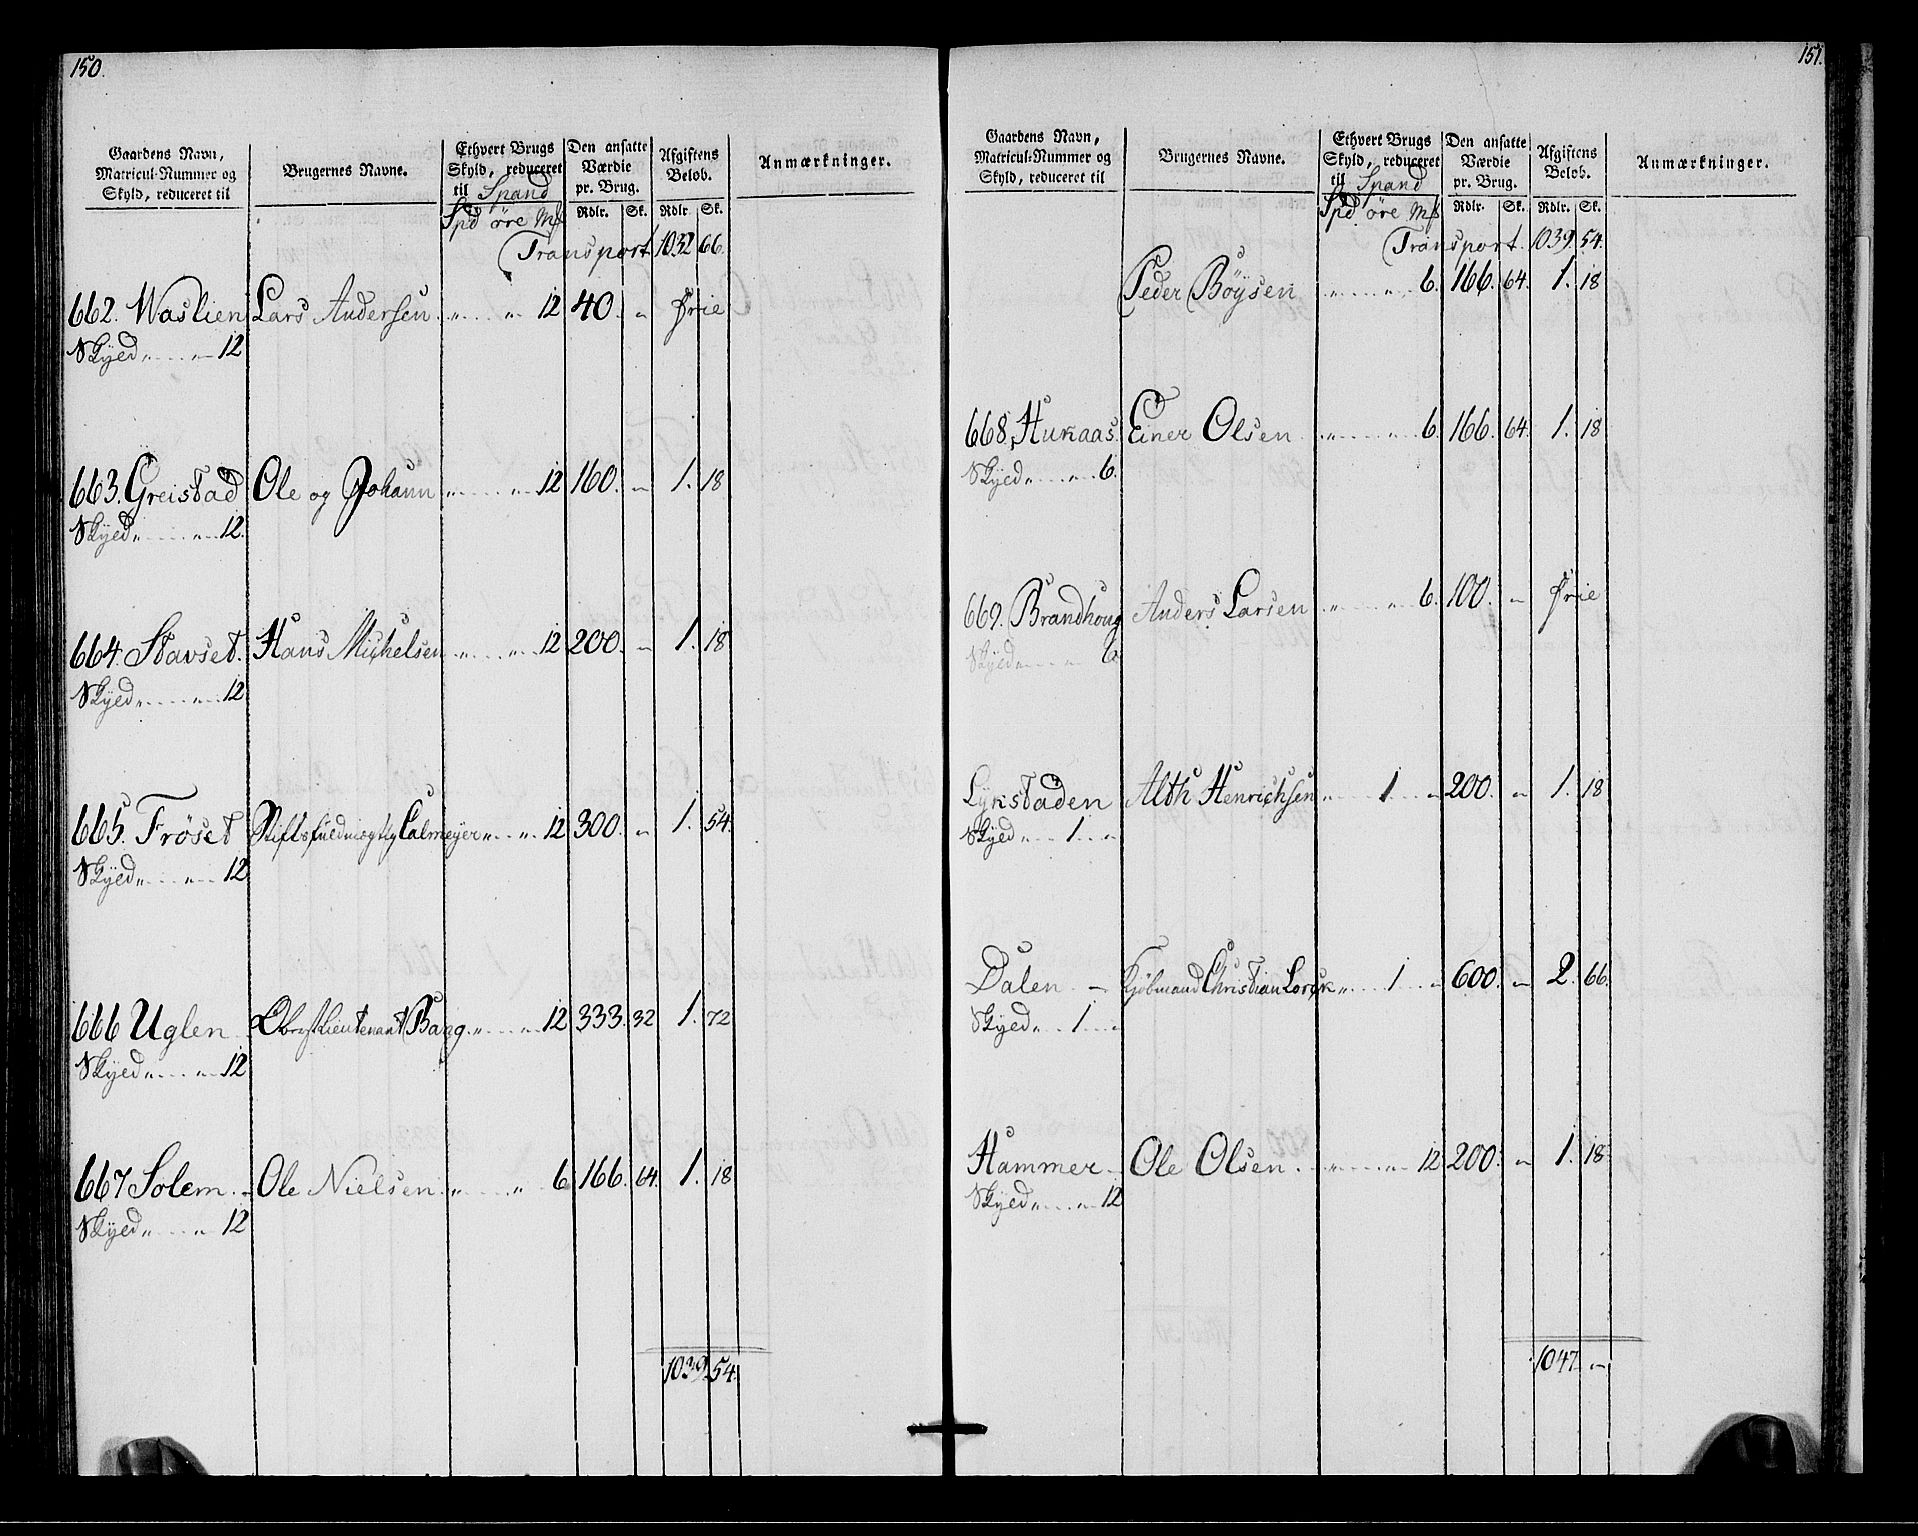 150.
Gaardens Navn, Matricul-Nummer og Skyld, reduceret til | Brugernes Navne. | Ethvert Brugs Skyld, reduceret til Spand | Den ansatte Værdie pr. Brug. | Afgiftens Beløb. | Anmærkninger.
Spd øre Mk | Rdlr. | Sk. | Rdlr | Sk.
Transport 1032 66.
662. Waslien Lars Andersen „ „ 12 40. „ Frie
Skyld „ „ 12
663. Greistad Ole og Johann „ „ 12 160. „ 1. 18
Skyld „ „ 12.
664. Stavset. Hans Michelsen „ „ 12 200. „ 1. 18
Skyld „ „ 12
665. Frøset Stiftsfuldmægtig Calmeyer „ „ 12 300. „ 1. 54.
Skyld „ „ 12
666 Uglen Obrystlieutenant Baag. „ „ 12 333. 32 1. 72
Skyld „ „ 12
667 Solem. Ole Nielsen „ „ 6 166. 64. 1. 18
Skyld „ „ 12
1039. 54.
151.
Gaardens Navn, Matricul-Nummer og Skyld, reduceret til | Brugernes Navne. | Ethvert Brugs Skyld, reduceret til Spand | Den ansatte Værdie pr. Brug. | Afgiftens Beløb. | Anmærkninger.
Spd øre Mk | Rdlr. | Sk. | Rdlr. | Sk.
Transport. 1039. 54.
Peder Böysen „ „ 6. 166. 64. 1. 18
668. Hukaas. Einer Olsen „ „ 6. 166. 64. 1. 18
Skyld „ „ 6.
669. Brandhoug Anders Larsen „ „ 6. 100. „ Frie
Skyld „ „ 6
Lykstaden Alth Henrichsen „ 1 „ 200. „ 1. 18
Skyld „ 1. „
Dalen — Kjøbmand Christian Lorck „ 1 „ 600. „ 2. 66.
Skyld „ 1. „
Hammer Ole Olsen „ „ 12 200. „ 1. 18
Skyld „ „ 12
1047. „